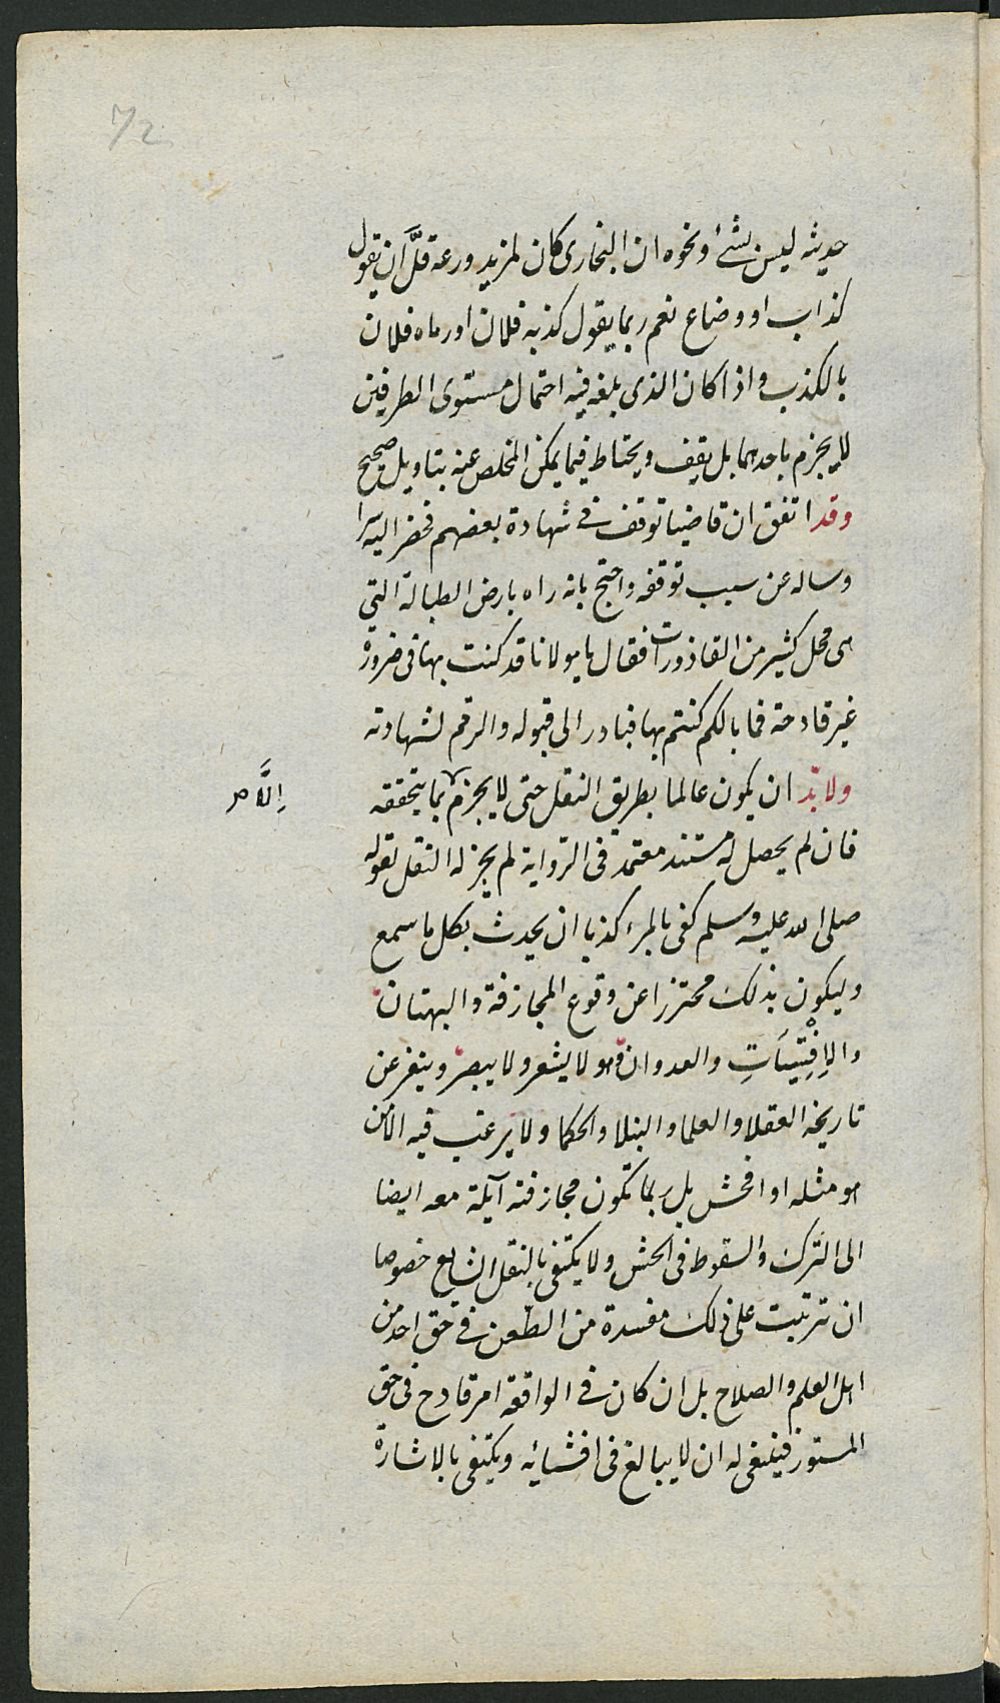 72
حديثه ليس بشئ ونحوه ان البخارى كان لمزيد ورعه قلَّ ان يقول
كذاب او وضاع نعم ربما يقول كذبه فلان او رماه فلان
بالكذب واذا كان الذى بلغه فيه احتمال مستوى الطرفين
لا يجزم باحدهما بل يقف ويحتاط فيما يمكن المخلص عنه بتاويل صحيح
وقد اتفق ان قاضيا توقف فى شهادة بعضهم فحضر اليه سرا
وساله عن سبب توقفه واحتج بانه راه بارض الطبالة التى
هى محل كثير من القاذورات فقال يا مولانا قد كنت بها فى ضرورة
غير قادحة فما بالكم كنتم بها فبادر الى قبوله والرقم لشهادته
ولا بدّ ان يكون عالما بطريق النقل حتى لا يجزم بما يتحققه
إلَّا صر
فان لم يحصل له مستند معتمد فى الرواية لم يجز له النقل لقوله
صلى الله عليه وسلم كفى بالمرء كذبا ان يحدث بكل ما سمع
وليكون بذلك محترزا عن وقوع المجازفة والبهتان
والإفْتِيَاتِ والعدوان وهو لا يشعر ولا يبصر وينفر عن
تاريخه العقلا والعلما والنبلا والحكما ولا يرغب فيه الا من
هو مثله او افحش بل ربما تكون مجازفته آيلة معه ايضا
الى الترك والسقوط فى الحش ولا يكتفى بالنقل الشايع خصوصا
ان ترتبت على ذلك مفسدة من الطعن فى حق احد من
اهل العلم والصلاح بل ان كان فى الواقعة امر قادح فى حق
المستور فينبغى له ان لا يبالغ فى افشائه ويكتفى بالاشارة